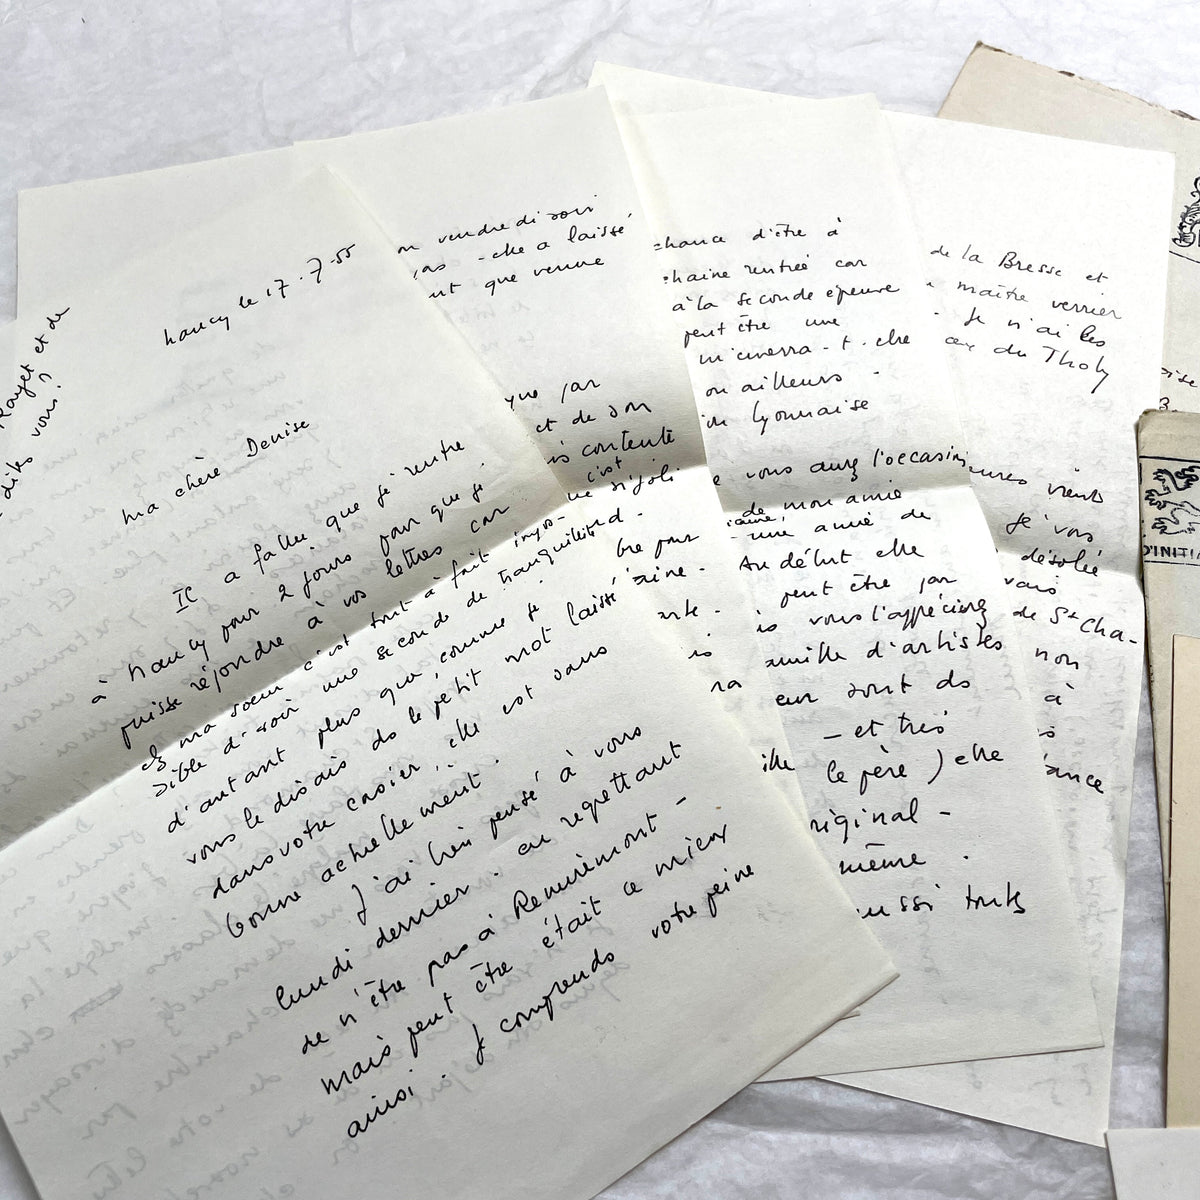 Nancy le 17.7.55
Ma chère Denise
Il a fallu que je rentre
à Nancy pour 2 jours pour que je
puisse répondre à vos lettres car
chez ma sœur c'est tout à fait impos-
sible d'avoir une seconde de tranquillité
d'autant plus que, comme je
vous le disais ds le petit mot laissé
dans votre casier, elle est sans
bonne actuellement.
J'ai bien pensé à vous
lundi dernier. en regrettant
de n'être pas à Remiremont -
mais peut être était ce mieux
ainsi. Je comprends votre peine
Rayet et de
vous?
on vendredi soir
pas - elle a laissé
que venue
par
et de son
is contente
c'est
si joli
bre pour
aine.
chance d'être à
chaine rentrée car
à la seconde épreuve
peut être une
m'emmènera-t-elle
ou ailleurs -
Lyonnaise
vous aurez l'occasion
de mon amie
une amie de
Au début elle
peut être par
is vous l'apprécierez
famille d'artistes
eur sont ds
- et très
ille le père) elle
original -
même.
aussi toutes
de la Bresse et
maître verrier
Je n'ai les
ceux du Tholy
vient
Je vous
désolée
vais
de St Cha-
non
à
is
ance
D'INITI